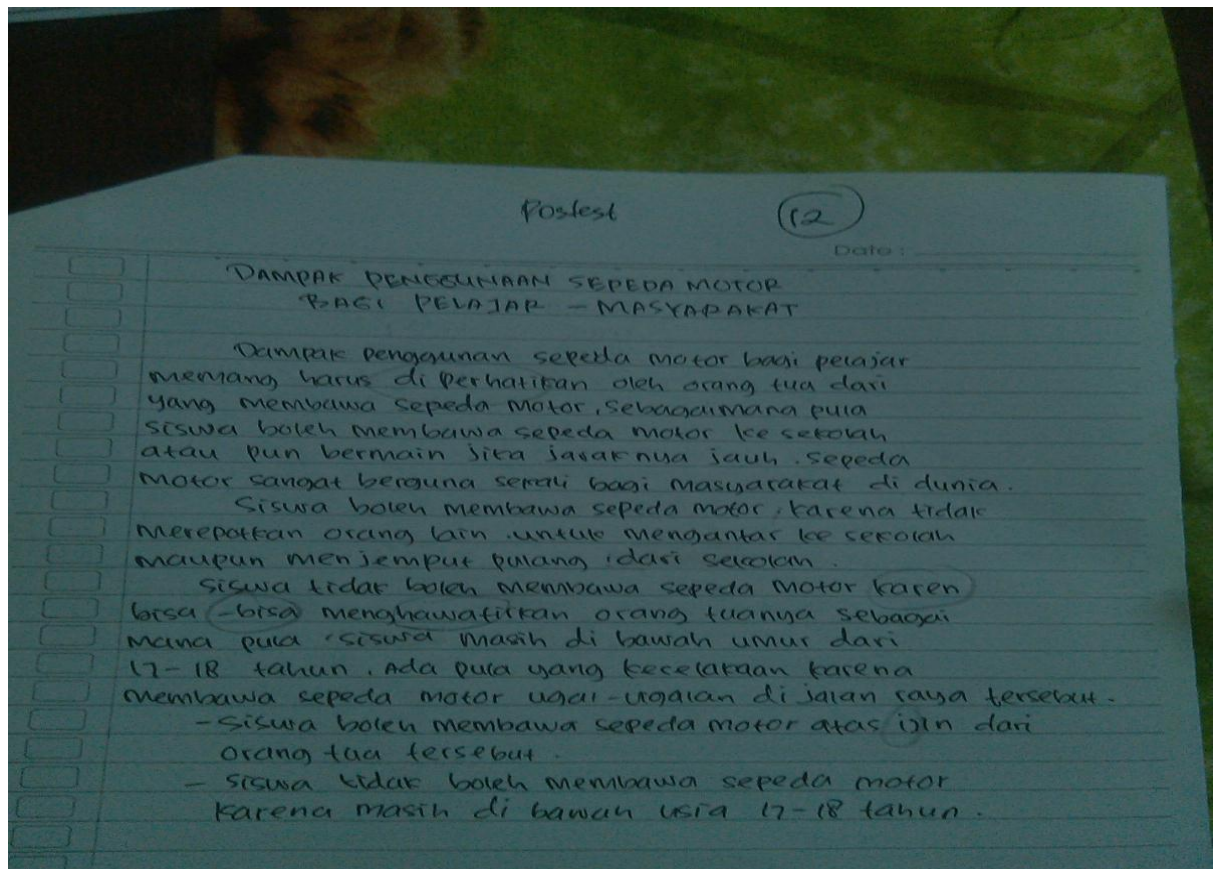 Postest
12
Date :
DAMPAK PENGGUNAAN SEPEDA MOTOR
BAGI PELAJAR - MASYARAKAT
Dampak penggunan sepeda motor bagi pelajar
memang harus di perhatikan oleh orang tua dari
yang membawa sepeda motor, sebagaimana pula
siswa boleh membawa sepeda motor ke sekolah
atau pun bermain jika jaraknya jauh. Sepeda
motor sangat berguna sekali bagi masyarakat di dunia.
Siswa boleh membawa sepeda motor, karena tidak
merepotkan orang lain untuk mengantar ke sekolah
maupun menjemput pulang dari sekolah.
Siswa tidak boleh membawa sepeda motor karen
bisa -bisa menghawatirkan orang tuanya sebagai
mana pula siswa masih di bawah umur dari
17-18 tahun. Ada pula yang kecelakaan karena
membawa sepeda motor ugal-ugalan di jalan raya tersebut.
- Siswa boleh membawa sepeda motor atas ijin dari
orang tua tersebut.
- Siswa tidak boleh membawa sepeda motor
karena masih di bawah usia 17-18 tahun.